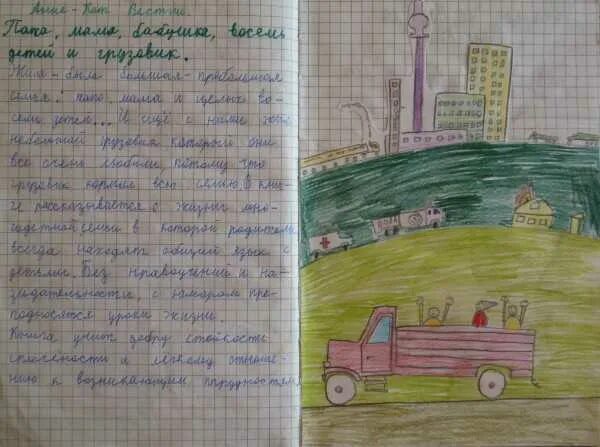 Анне-Кат. Вестли.
Папа, мама, бабушка, восемь
детей и грузовик.
Жила-была большая-пребольшая
семья: папа, мама и целых во-
семь детей... И ещё с ними жил
небольшой грузовик, который они
все очень любили, потому что
грузовик кормил всю семью. В кни-
ге рассказывается о жизни мно-
годетной семьи в которой родители
всегда находят общий язык с
детьми. Без нравоучений и на-
зидательности, с юмором пре-
подносятся уроки жизни.
Книга учит добру, стойкости
сплочённости и лёгкому отноше-
нию к возникающим трудностям